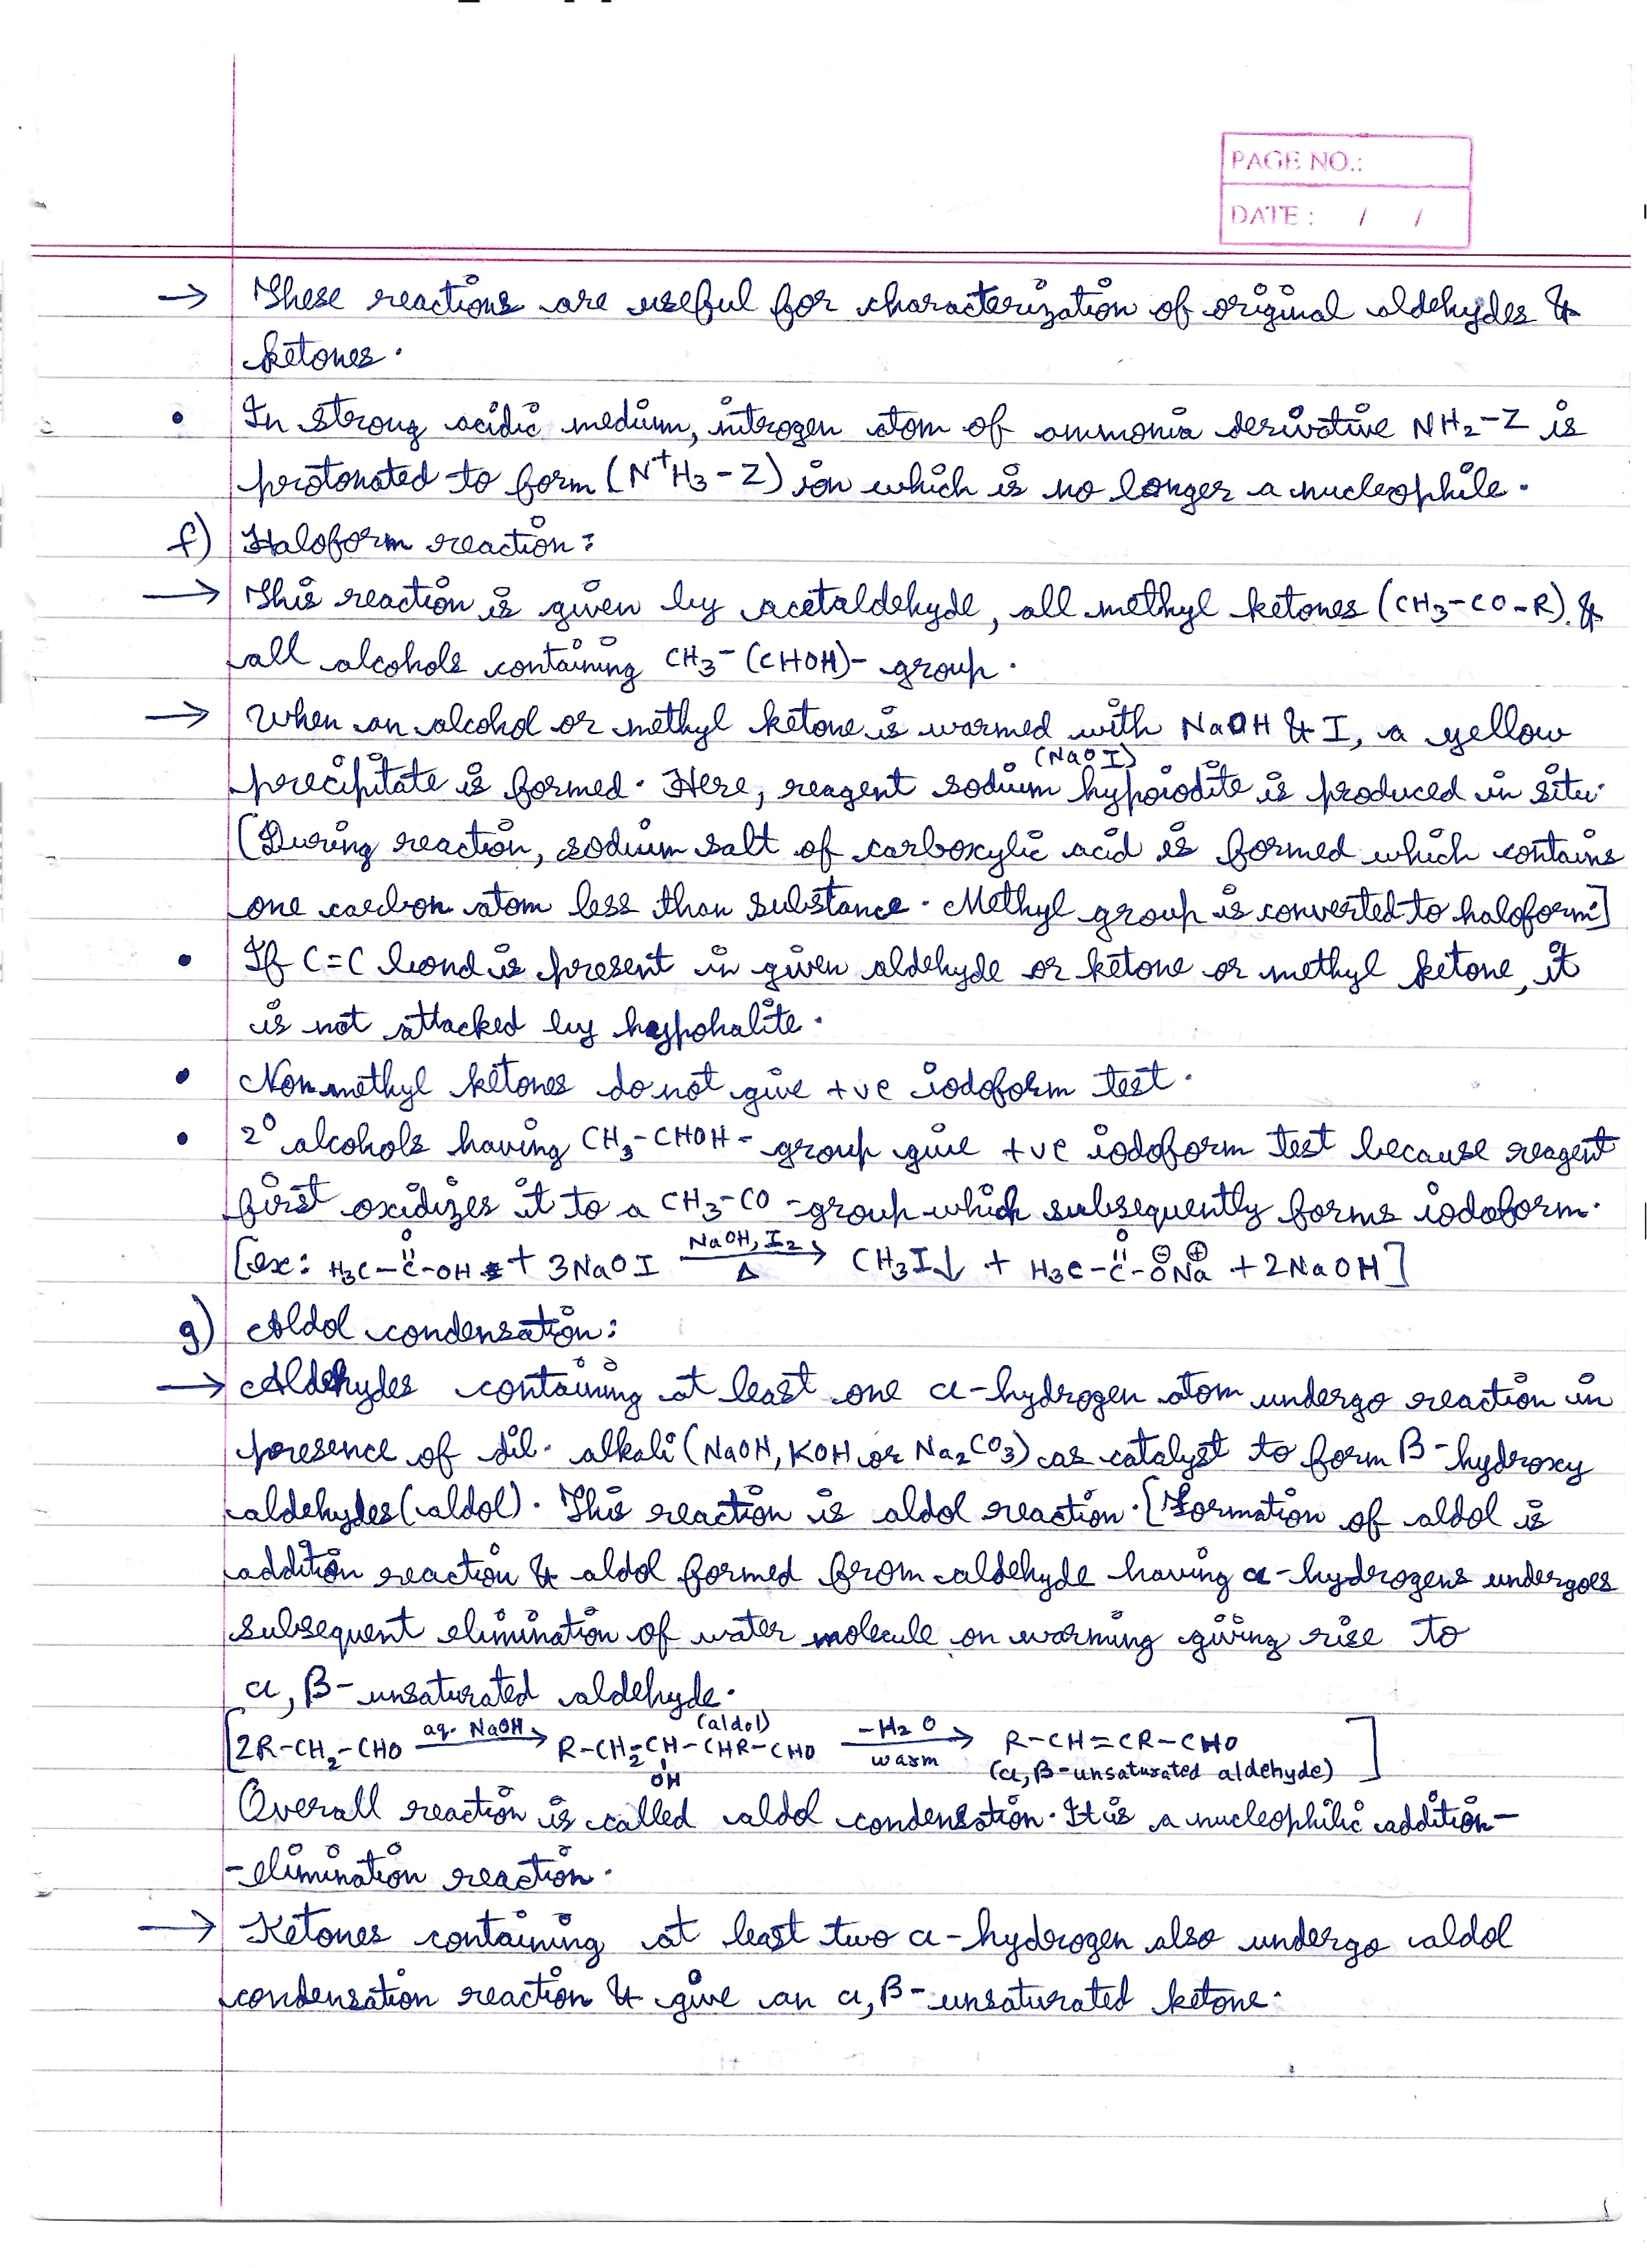 PAGE NO.:
DATE : / /
→ These reactions are useful for characterization of original aldehydes &
ketones.
• In strong acidic medium, nitrogen atom of ammonia derivative NH₂-Z is
protonated to form (N⁺H₃-Z) ion which is no longer a nucleophile.
f) Haloform reaction:
→ This reaction is given by acetaldehyde, all methyl ketones (CH₃-CO-R). &
all alcohols containing CH₃-(CHOH)- group.
→ When an alcohol or methyl ketone is warmed with NaOH & I, a yellow
(NaOI)
precipitate is formed. Here, reagent sodium hypoiodite is produced in situ.
(During reaction, sodium salt of carboxylic acid is formed which contains
one carbon atom less than substance. Methyl group is converted to haloform.]
• If C=C bond is present in given aldehyde or ketone or methyl ketone, it
is not attacked by hypohalite.
• Non methyl ketones do not give +ve iodoform test.
• 2° alcohols having CH₃-CHOH- group give +ve iodoform test because reagent
first oxidizes it to a CH₃-CO-group which subsequently forms iodoform.
[ex: H₃C-C(=O)-OH + 3NaOI —NaOH, I₂/Δ→ CH₃I↓ + H₃C-C(=O)-O⊖Na⊕ + 2NaOH]
g) Aldol condensation:
→ Aldehydes containing at least one α-hydrogen atom undergo reaction in
presence of dil. alkali (NaOH, KOH or Na₂CO₃) as catalyst to form β-hydroxy
aldehydes (aldol). This reaction is aldol reaction. [Formation of aldol is
addition reaction & aldol formed from aldehyde having α-hydrogens undergoes
subsequent elimination of water molecule on warming giving rise to
α, β-unsaturated aldehyde.
[2R-CH₂-CHO —aq. NaOH→ R-CH₂-CH(OH)-CHR-CHO (aldol) —-H₂O/warm→ R-CH=CR-CHO ]
(α, β-unsaturated aldehyde)
Overall reaction is called aldol condensation. It is a nucleophilic addition-
-elimination reaction.
→ Ketones containing at least two α-hydrogen also undergo aldol
condensation reaction & give an α, β-unsaturated ketone.